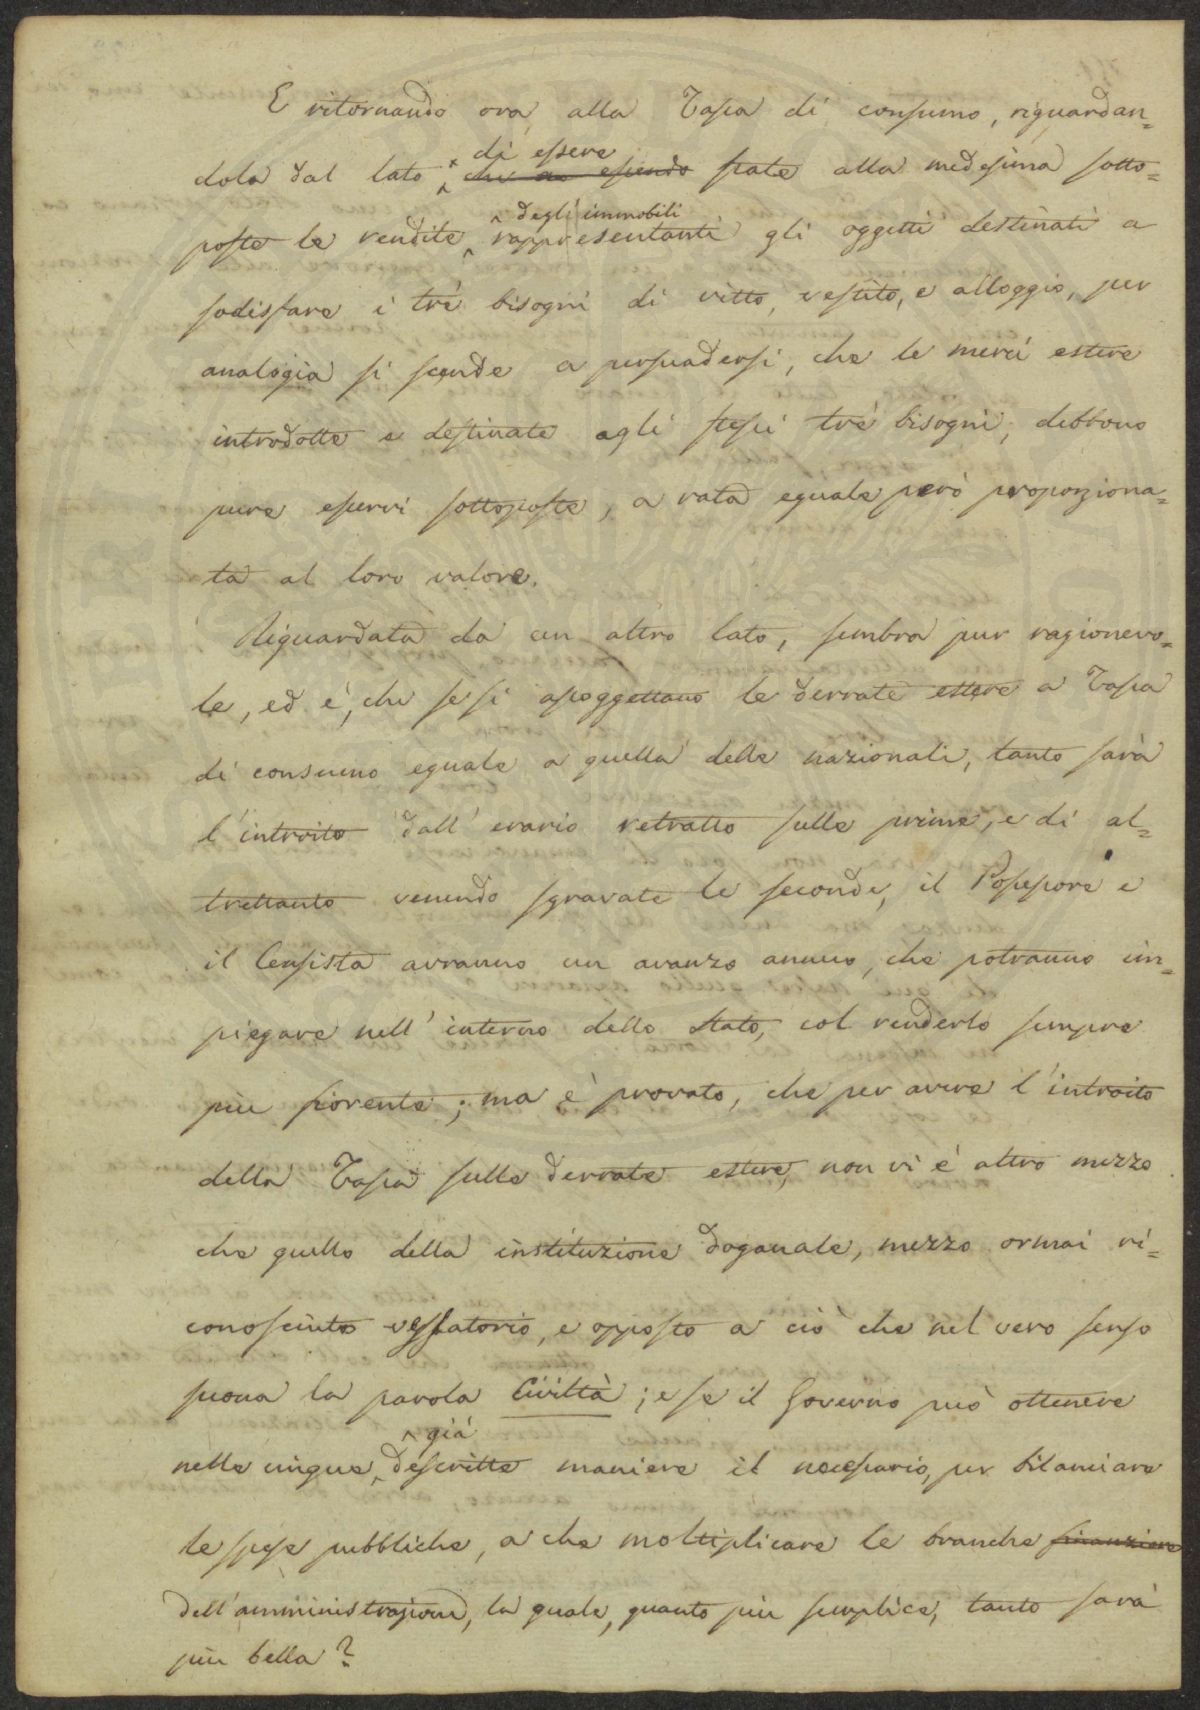 E ritornando ora alla Tassa di consumo, riguardan=
dola dal lato di essere che no essendo state alla medesima sotto=
poste le rendite degli immobili rappresentanti gli oggetti destinati a
sodisfare i trè bisogni di vitto, vestito, e alloggio, per
analogia si scende a persuadersi, che le merci estere
introdotte e destinate agli stessi trè bisogni, debbono
pure esservi sottoposte, a rata eguale però proporziona=
ta al loro valore.
Riguardata da un altro lato, sembra pur ragionevo=
le, ed è, che se si assoggettano le derrate estere a Tassa
di consumo eguale a quella delle nazionali, tanto sarà
l'introito dall'erario retratto sulle prime, e di al=
trettanto venendo sgravate le seconde, il Possessore e
il Censista avranno un avanzo annuo, che potranno im=
piegare nell'interno dello Stato, col renderlo sempre
più fiorente; ma è provato, che per avere l'introito
della Tassa sulle derrate estere, non vi è altro mezzo
che quello della instituzione doganale, mezzo ormai ri=
conosciuto vessatorio, e opposto a ciò che nel vero senso
suona la parola Civiltà; e se il Governo può ottenere
nelle cinque già descritte maniere il necessario, per bilanciare
le spese pubbliche, a che moltiplicare le branche finanziere
dell'amministrazione, la quale, quanto più semplice, tanto sarà
più bella?